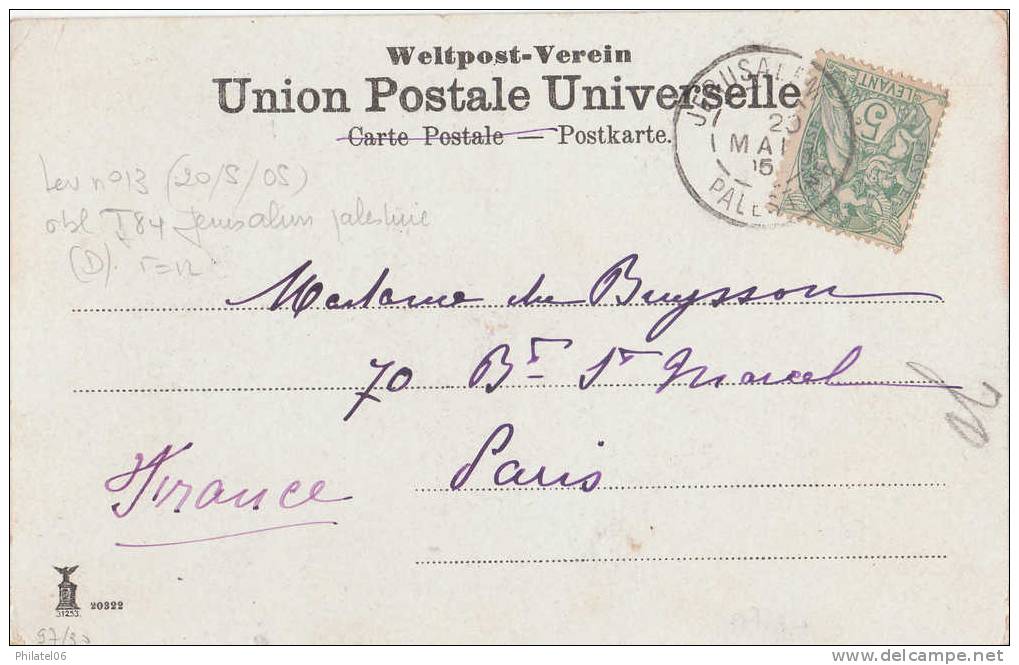 Weltpost-Verein
Union Postale Universelle
Carte Postale — Postkarte.
JERUSALEM
20
MAI
05
PALESTINE
5
LEVANT
POSTES
Lev n°13 (20/5/05)
obl T84 Jerusalem palestine
(D).
Madame du Buysson
70 Bd St Marcel
Paris
France
31253
20322
97/90
Philatel06
www.delcampe.net